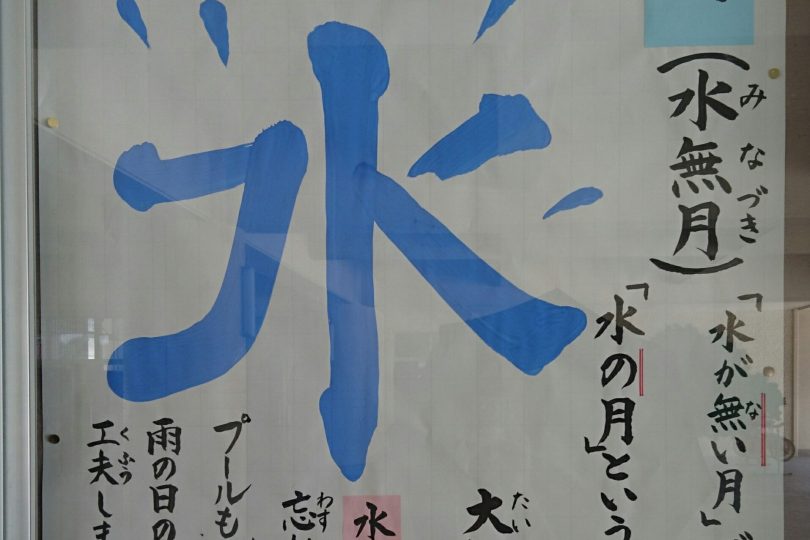 (水無月)
みなづき
「水が無い月」
な
「水の月」という
大
たい
水
水
忘
わす
プールも
雨の日の
工夫しま
くふう